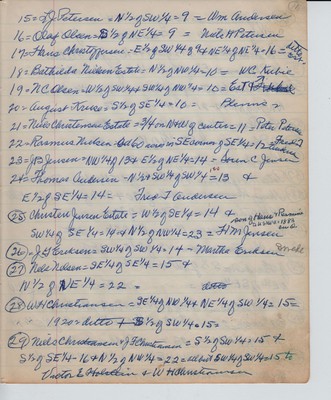 15= J J Petersen = N½ of SW¼ = 9 = Wm Andersen
16= Olaf Olson = S½ of NE¼ = 9 = Niels H Petersen
17= Hans Christoffersen = E½ of SW¼ & W½ of NE¼ = 16 =
18= Bathilda Nielsen Estate = N½ of NW¼ = 10 = W C Kubie
19= N C Olson = W½ of SW¼ & SW¼ of NW¼ = 10 =
20= August Kruse = S½ of SE¼ = 10 =
21= Niels Christensen Estate = 3/4 on N & W of center = 11 Peter Petersen
22= Rasmus Nielsen in SE corner of SE¼ = 12 =
23= J P Jensen = NW¼ of 13 & E½ of NE¼ = 14 = Soren C Jensen
24= Thomas Andersen = N½ & SW¼ of SW¼ = 13 &
E½ of SE¼ = 14 = Fred T Andersen
25= Christen Jensen Estate = W½ of SE¼ = 14 &
SW¼ of SE¼ = 14 & N½ of NW¼ = 23 = H M Jensen
son of Hans & Rasmine
26= J G Erickson = SW¼ of SW¼ = 14 - Martha Erickson
27= Niels Nielsen = SE¼ of SE¼ = 15 &
N½ of NE¼ = 22 = ditto
28= W H Christiansen = SE¼ of NW¼ & NE¼ of SW¼ = 15 =
1920 = ditto & S½ of SW¼ = 15 =
29= Niels Christiansen & J F Christiansen = S½ of SW¼ = 15 &
S½ of SE¼ - 16 & N½ of NW¼ = 22 = all but SW¼ of SW¼ = 15 to
Victor E Holstein & W H Christiansen